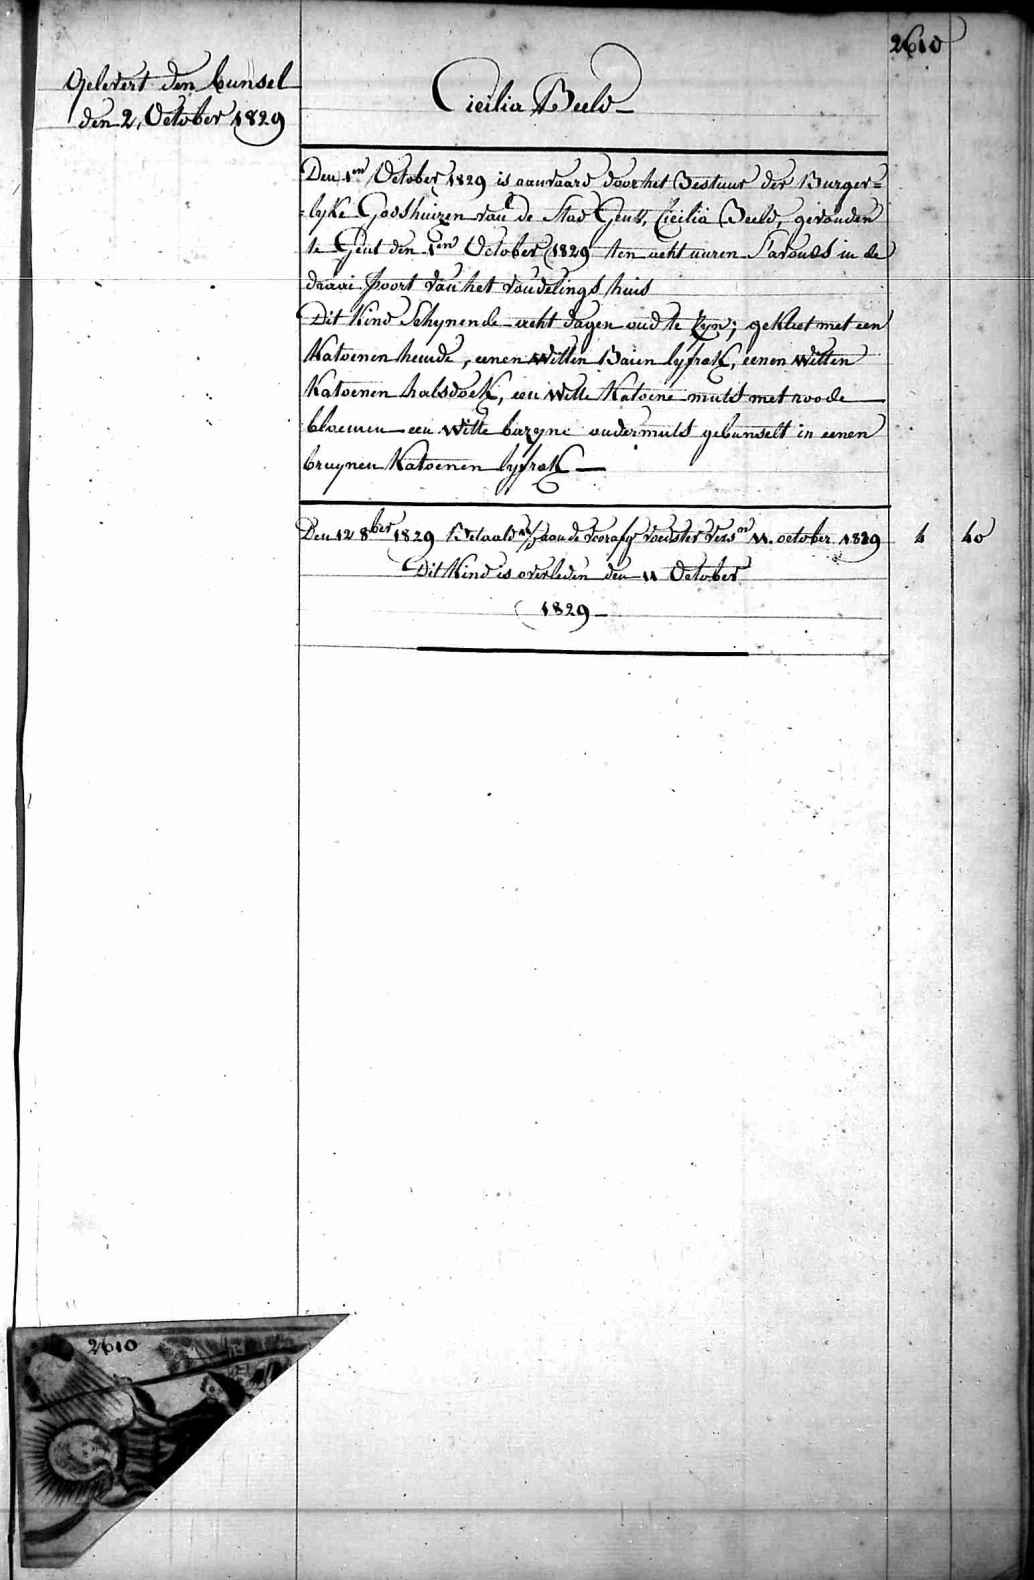 2610
Gelevert den bunsel
den 2, October 1829
Cicilia Beeld
Den 1en October 1829 is aanvaard door het Bestuur der Burger=
=lyke Godshuizen van de Stad Gend, Cicilia Beeld, gevonden
te Gent den 1en October 1829 ten acht uuren S'avonds in de
draai poort van het vondelings huis
Dit Kind Schynende acht dagen oud te zyn; gekleet met een
Katoenen hemde, eenen witten Baien lyfrok, eenen witten
Katoenen halsdoek, een witte Katoene muts met roode
bloemen een witte bazyne ondermuts gebunselt in eenen
bruynen Katoenen lyfrok
Den 12 8ber 1829 Betaald aan de voedster 11. october 1829 4 40
Dit Kind is overleden den 11 October
1829
2610